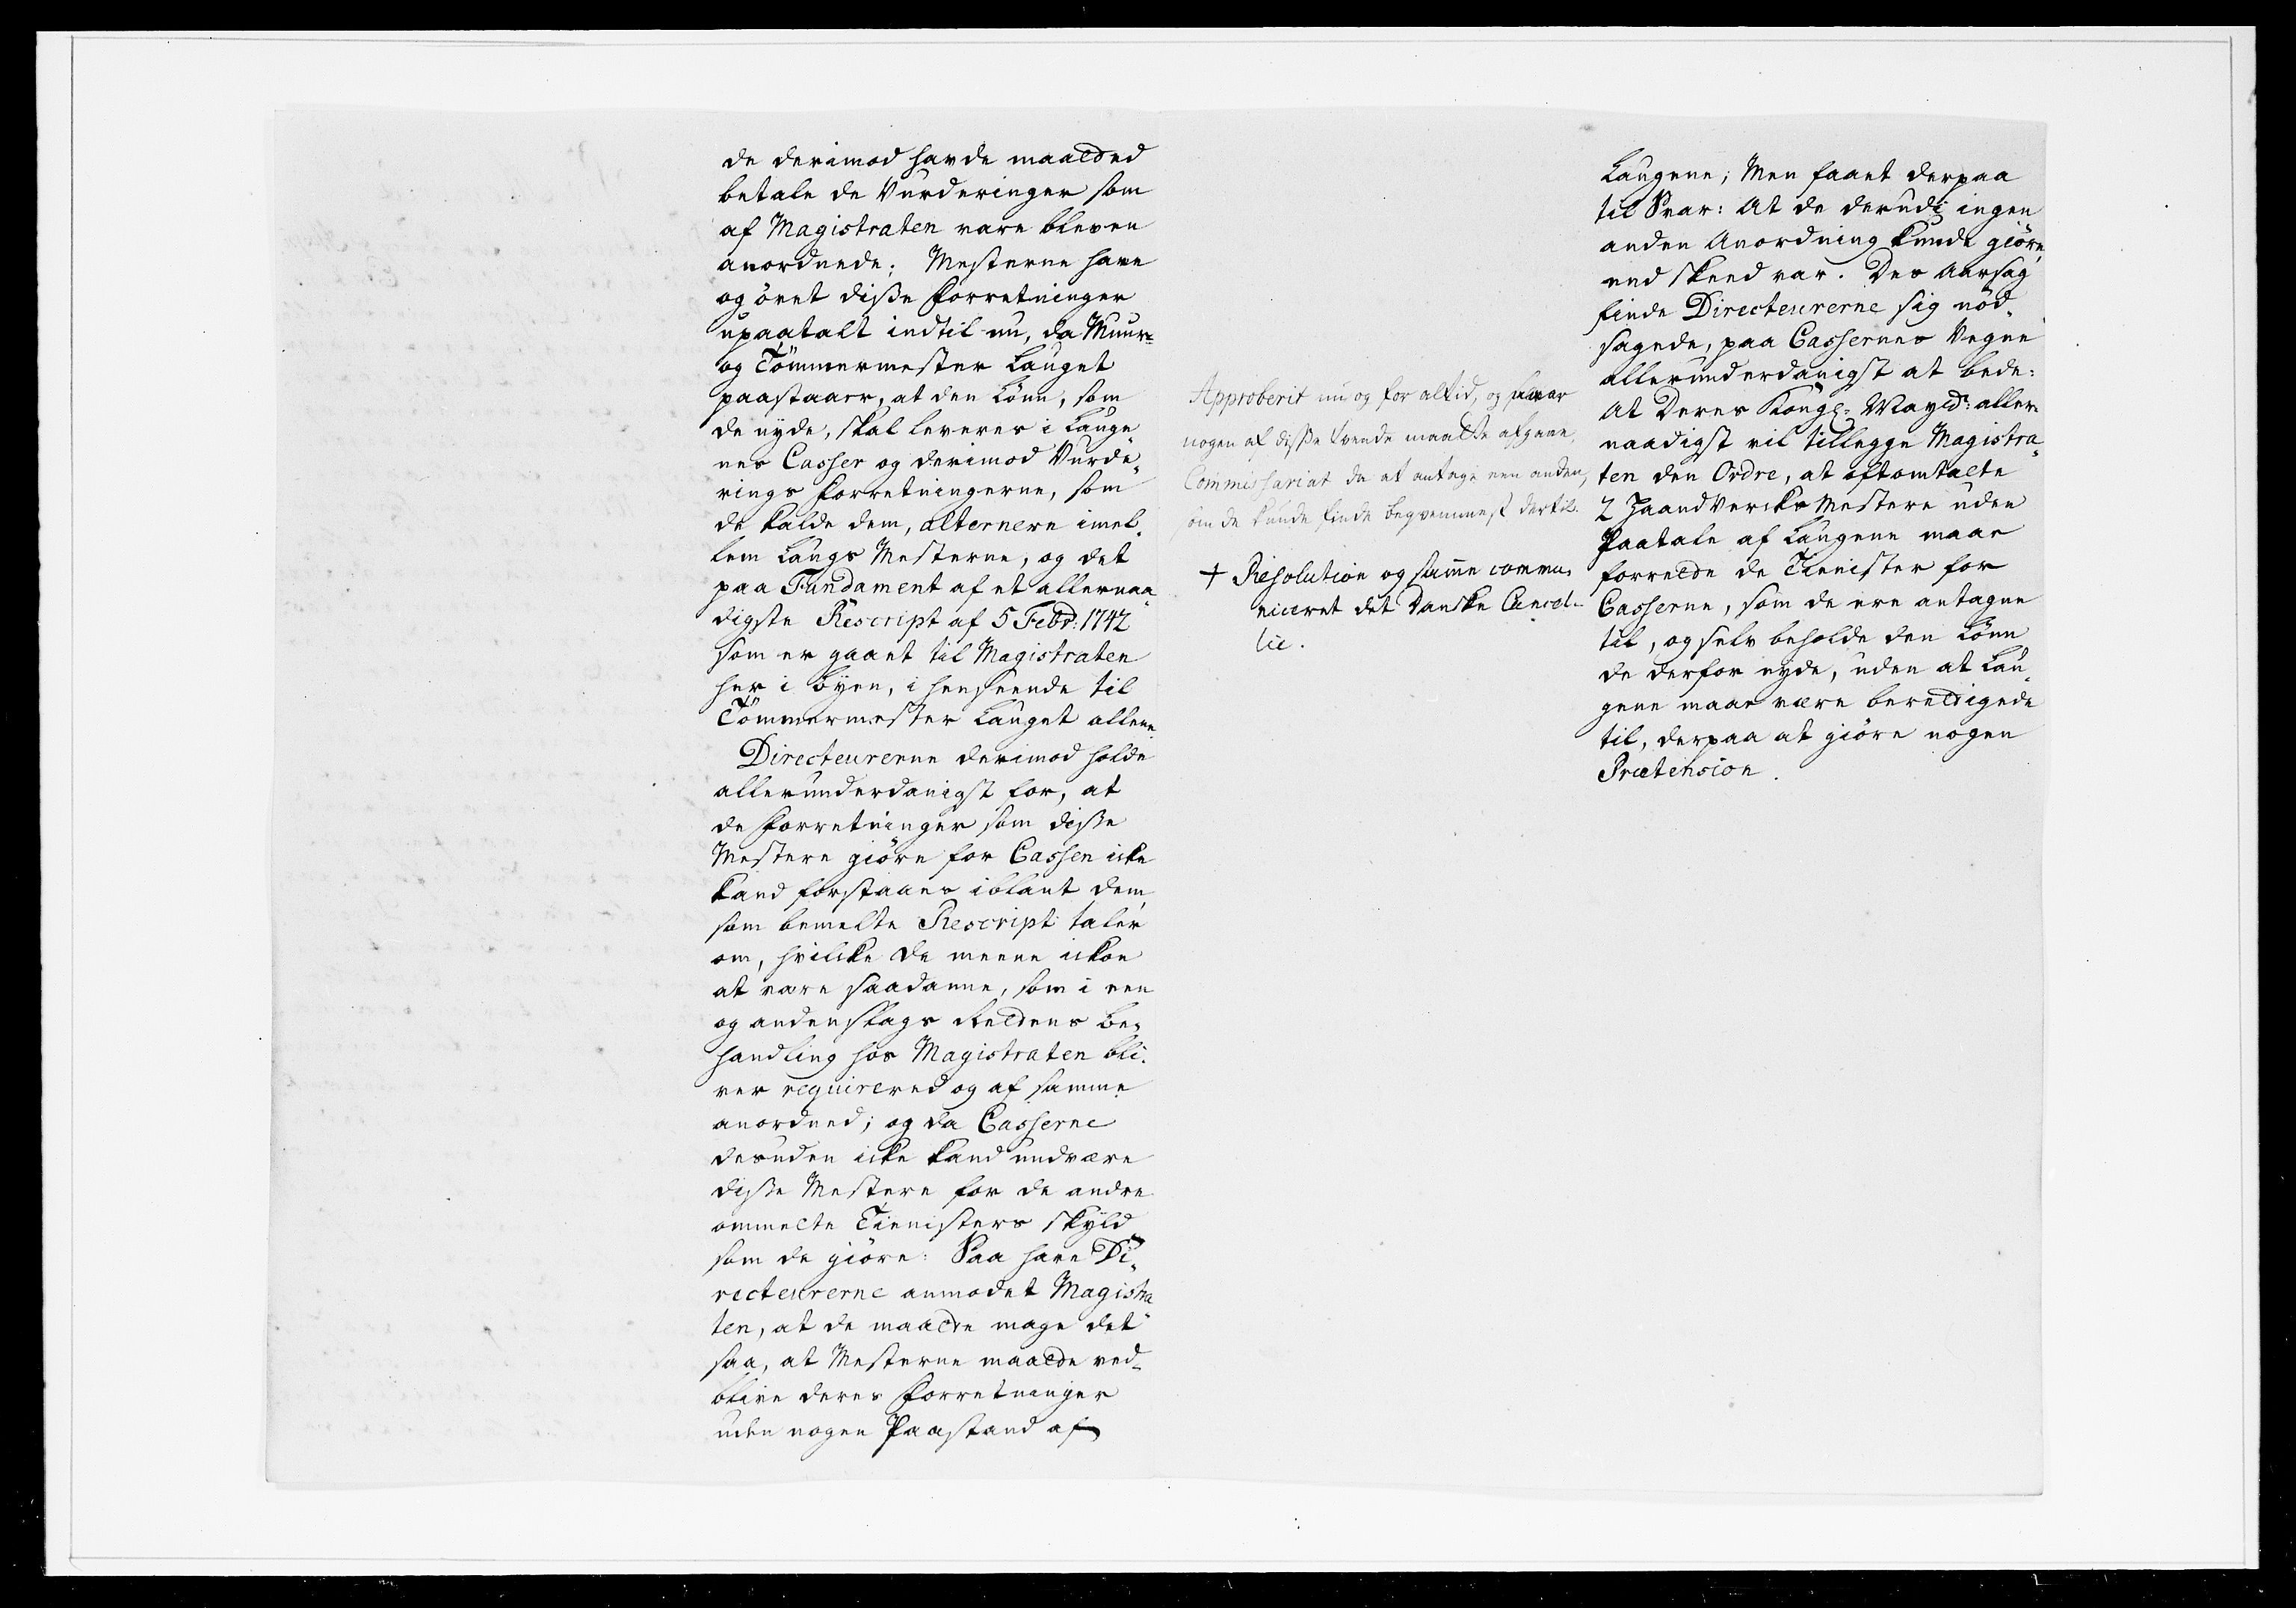 de derimod havde maatted
betale de Vurderinger som
af Magistraten vare bleven
anordnede; Mesterne have
og övet disse forretninger
upaatalt indtil nu, da Muur-
og Tömmermester Lauget
paastaaer, at den Lönn, som
de nyde, skal leveres i Lauge
nes Casser og derimod Vurde-
rings forretningerne, som
de kalde dem, alternere imel-
lem Laugs Mesterne, og det
paa Fundament af et allernaa-
digste Rescript af 5 Febr: 1742
som er gaaet til Magistraten
her i Byen, i henseende til
Tömmermester Lauget allene.
Directeurerne derimod holde
allerunderdanigst for, at
de forretninger som disse
Mestere giöre for Cassen icke
kand forstaaes iblant dem,
som bemelte Rescript taler
om, hvilcke de meene ickon
at være saadanne, som i een
og anden slags Rettens be-
handling hos Magistraten bli-
ver requirered og af samme
anordned; og da Casserne
desuden icke kand undvære
disse Mestere for de andre
ommelte Tienisters skyld
som de giöre: Saa have Di-
recteurerne anmodet Magistra
ten, at de maatte mage det
saa, at Mesterne maatte ved-
blive deres forretninger
uden nogen Paastand af
Approberit nu og for altid, og naar
nogen af disse tvende maatte afgaae,
Commissariat da at antage een anden,
som de kunde finde beqvemmest dertil.
+ Resolution og samme commu-
niceret det Danske Cancel-
lie.
Laugene; Men faaet derpaa
til Svar: At de derudi ingen
anden Anordning kunde giöre,
end skeed var. Des Aarsag
finde Directeurerne sig nöd-
sagede, paa Cassernes Vegne
allerunderdanigst at bede:
At Deres Kongl: Mayst: aller-
naadigst vil tillegge Magistra-
ten den Ordre, at oftomtalte
2 Haandvercks Mestere uden
Paatale af Laugene maae
forrette de Tienister for
Casserne, som de ere antagne
til, og selv beholde den Lönn
de derfor nyde, uden at Lau-
gene maae være berettigede
til, derpaa at giöre nogen
Prætension.